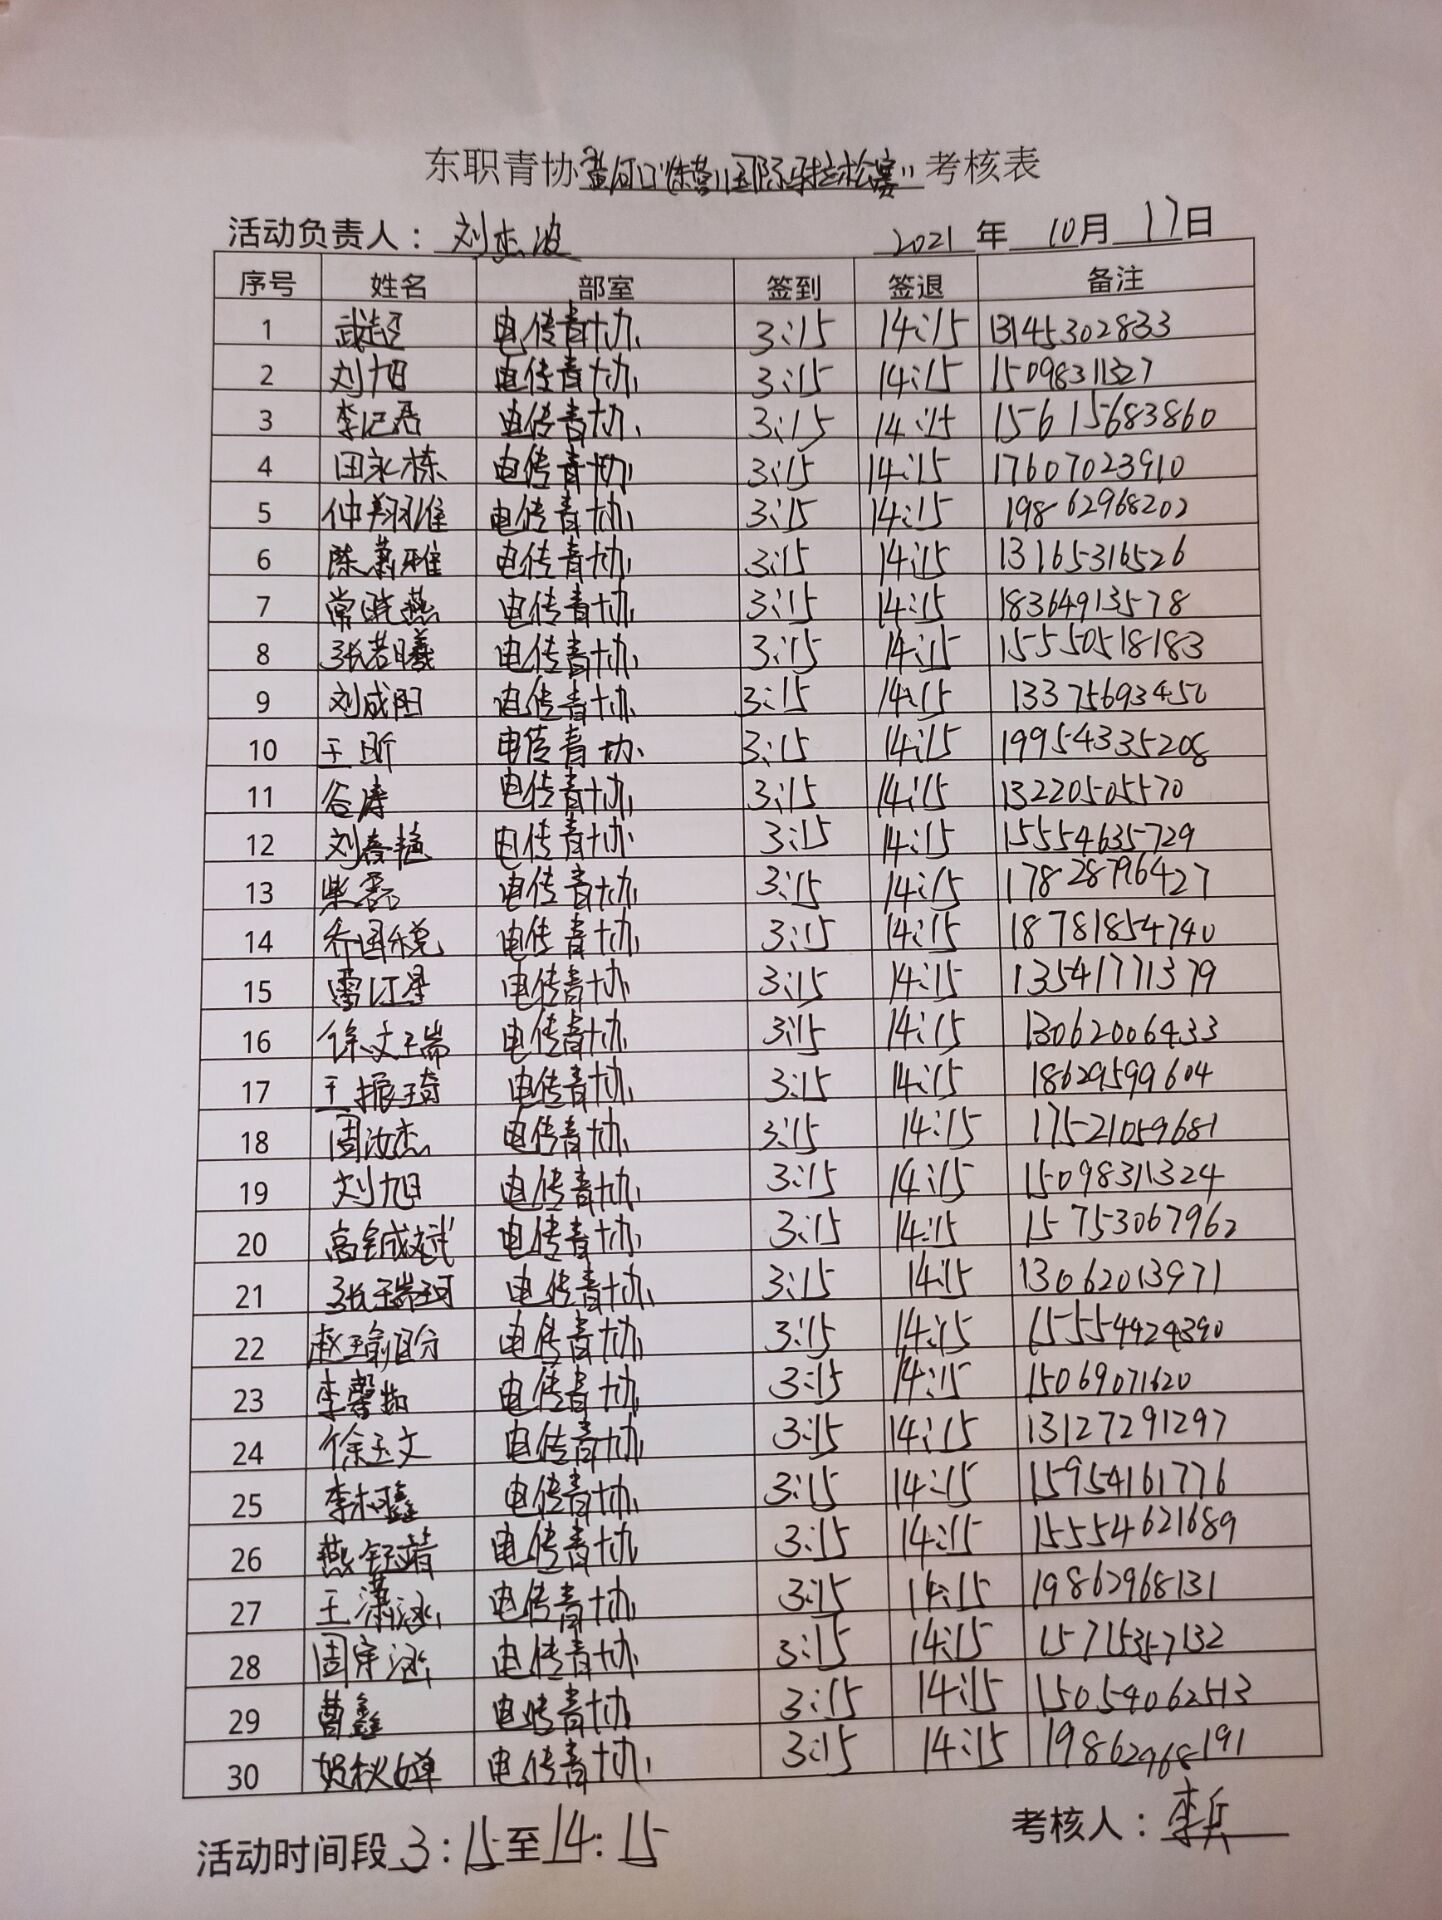 东职青协黄河口(东营)国际马拉松赛考核表
活动负责人：刘杰波 2021年10月17日
序号 姓名 部室 签到 签退 备注
1 武超 电传青协 3:15 14:15 13145302833
2 刘旭 电传青协 3:15 14:15 15098311327
3 李记君 电传青协 3:15 14:15 15615683860
4 田永栋 电传青协 3:15 14:15 17607023910
5 仲翔淮 电传青协 3:15 14:15 19862968202
6 陈萧雅 电传青协 3:15 14:15 13165316526
7 常晓燕 电传青协 3:15 14:15 18364913578
8 张若曦 电传青协 3:15 14:15 15550518183
9 刘成国 电传青协 3:15 14:15 13375693450
10 王昕 电传青协 3:15 14:15 19954335208
11 谷涛 电传青协 3:15 14:15 13220505570
12 刘春艳 电传青协 3:15 14:15 15554635729
13 柴磊 电传青协 3:15 14:15 17828796427
14 乔国悦 电传青协 3:15 14:15 18781854740
15 雷江星 电传青协 3:15 14:15 13541771379
16 徐文瑞 电传青协 3:15 14:15 13062006433
17 王振琦 电传青协 3:15 14:15 18629599604
18 周汝杰 电传青协 3:15 14:15 17521059681
19 刘旭 电传青协 3:15 14:15 15098311324
20 高铖斌 电传青协 3:15 14:15 15753067962
21 张瑞珂 电传青协 3:15 14:15 13062013971
22 赵瑜盼 电传青协 3:15 14:15 15554424390
23 李馨如 电传青协 3:15 14:15 15069071620
24 徐玉文 电传青协 3:15 14:15 13127291297
25 李柯鑫 电传青协 3:15 14:15 15954161776
26 燕钰靖 电传青协 3:15 14:15 15554621689
27 王潇涵 电传青协 3:15 14:15 19862968131
28 周宇涵 电传青协 3:15 14:15 15715357132
29 曹鑫 电传青协 3:15 14:15 15054062513
30 贺秋婵 电传青协 3:15 14:15 19862968191
活动时间段3:15至14:15 考核人：李兵